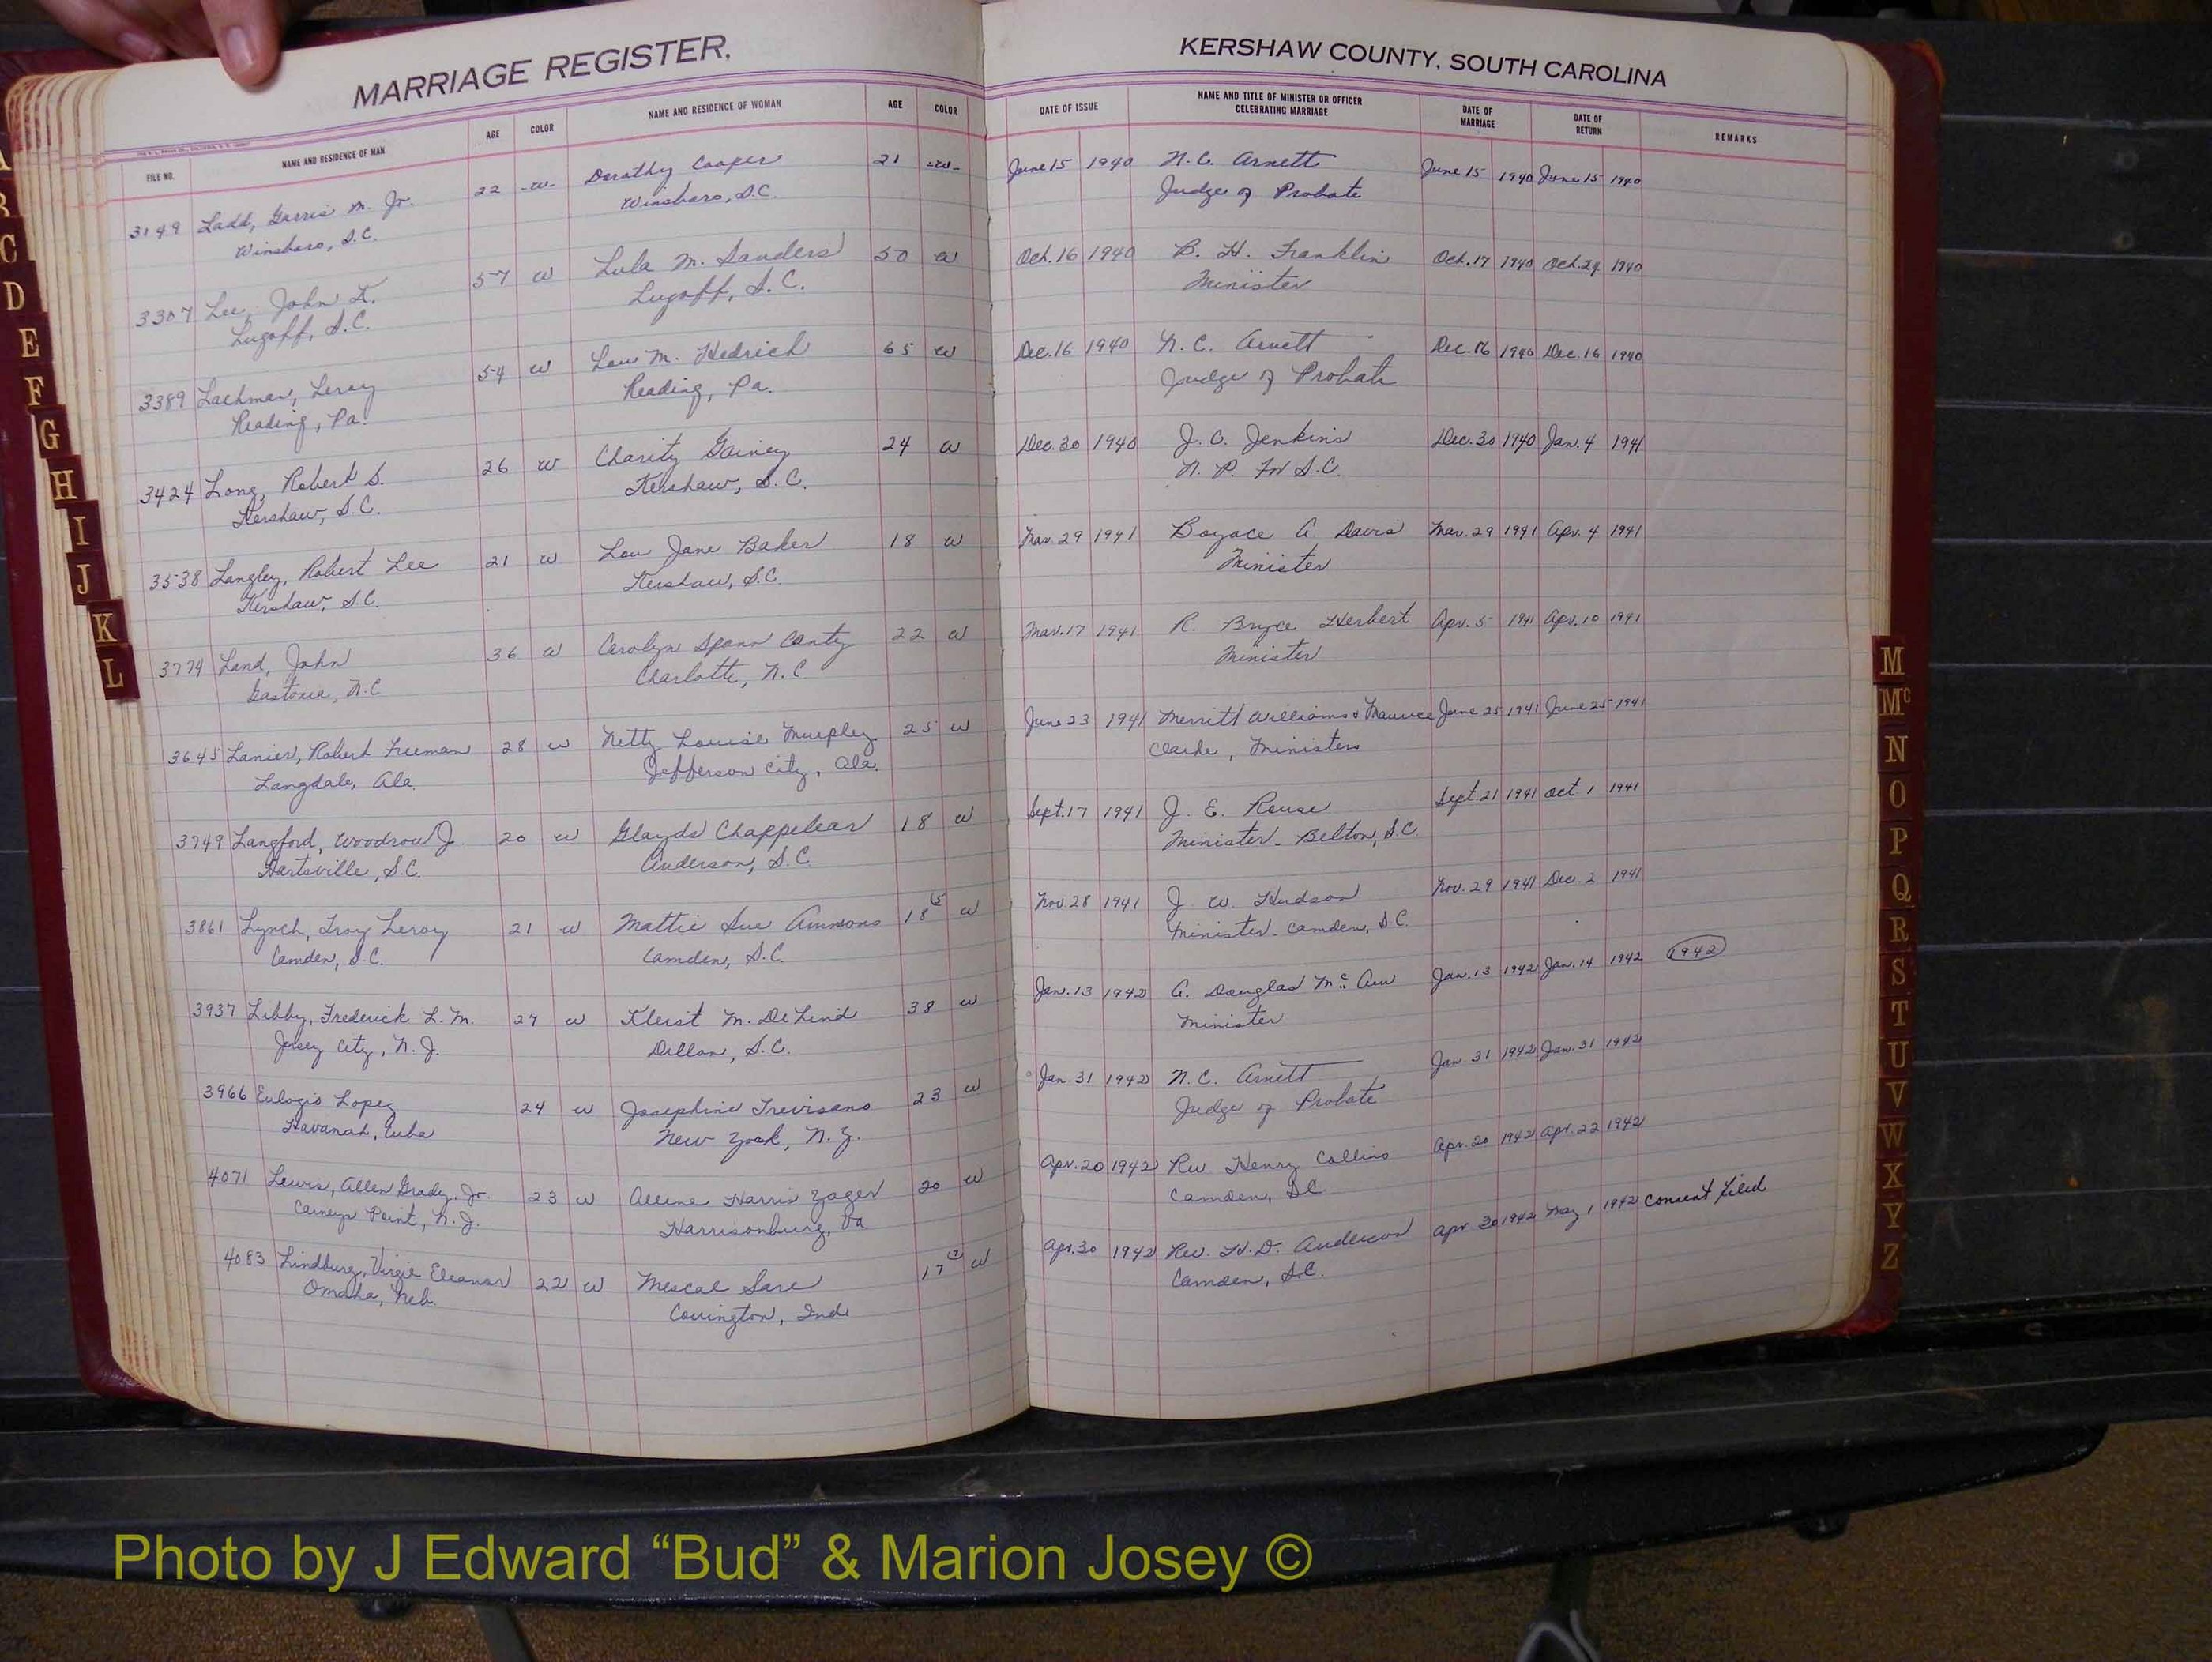 MARRIAGE REGISTER,
FILE NO. NAME AND RESIDENCE OF MAN AGE COLOR NAME AND RESIDENCE OF WOMAN AGE COLOR
3149 Ladd, Garris M. Jr. 22 -w- Dorothy Cooper 21 -w-
Winsboro, S.C. Winsboro, S.C.
3307 Lee, John 57 w Lula M. Sanders 50 w
Lugoff, S.C. Lugoff, S.C.
3389 Lachman, Leroy 54 w Lou M. Hedrich 65 w
Reading, Pa. Reading, Pa.
3424 Long, Robert S. 26 w Charity Gainey 24 w
Kershaw, S.C. Kershaw, S.C.
3538 Langley, Robert Lee 21 w Lou Jane Baker 18 w
Kershaw, S.C. Kershaw, S.C.
3774 Land, John 36 w Carolyn Spann Canty 22 w
Gastonia, N.C Charlotte, N.C
3645 Lanier, Robert Freeman 28 w Netty Louise Murphey 25 w
Langdale, Ala. Jefferson City, Ala.
3749 Langford, Woodrow J. 20 w Glayds Chappelear 18 w
Hartsville, S.C. Anderson, S.C.
3861 Lynch, Troy Leroy 21 w Mattie Sue Ammons 18 w
Camden, S.C. Camden, S.C.
3937 Libby, Frederick L. M. 27 w Kleist M. DeLind 38 w
Jersey City, N.J. Dillon, S.C.
3966 Eulogio Lopez 24 w Josephine Trevisano 23 w
Havanah, Cuba New York, N.Y.
4071 Lewis, Allen Grady, Jr. 23 w Allene Harris Yager 20 w
Carneys Point, N.J. Harrisonburg, Va
4083 Lindburg, Virgie Eleanor 22 w Mescal Sare 17 w
Omaha, Neb. Covington, Ind.
KERSHAW COUNTY, SOUTH CAROLINA
DATE OF ISSUE NAME AND TITLE OF MINISTER OR OFFICER CELEBRATING MARRIAGE DATE OF MARRIAGE DATE OF RETURN REMARKS
June 15 1940 N.C. Arnett June 15 1940 June 15 1940
Judge of Probate
Oct. 16 1940 B. H. Franklin Oct. 17 1940 Oct. 24 1940
Minister
Dec. 16 1940 N. C. Arnett Dec. 16 1940 Dec. 16 1940
Judge of Probate
Dec. 30 1940 J. C. Jenkins Dec. 30 1940 Jan. 4 1941
N. P. for S.C.
Mar. 29 1941 Boyace A. Davis Mar. 29 1941 Apr. 4 1941
Minister
Mar. 17 1941 R. Bryce Herbert Apr. 5 1941 Apr. 10 1941
Minister
June 23 1941 Merritt Williams & Maurice June 25 1941 June 25 1941
Clarke, Ministers
Sept. 17 1941 J. E. Rouse Sept. 21 1941 Oct 1 1941
Minister - Belton, S.C.
Nov. 28 1941 J. W. Hudson Nov. 29 1941 Dec. 2 1941
Minister - Camden, S.C.
Jan. 13 1942 A. Douglas Jan. 13 1942 Jan. 14 1942 1942
Minister
Jan. 31 1942 N.C. Arnett Jan. 31 1942 Jan. 31 1942
Judge of Probate
Apr. 20 1942 Rev Henry Collins Apr. 20 1942 Apr. 22 1942
Camden, S.C.
Apr. 30 1942 Rev. H. D. Anderson Apr. 30 1942 May 1 1942 Consent filed
Camden, S.C.
B
C
D
E
F
G
H
I
J
K
L
M
Mc
N
O
P
Q
R
S
T
U
V
W
X
Y
Z
Photo by J Edward “Bud” & Marion Josey ©